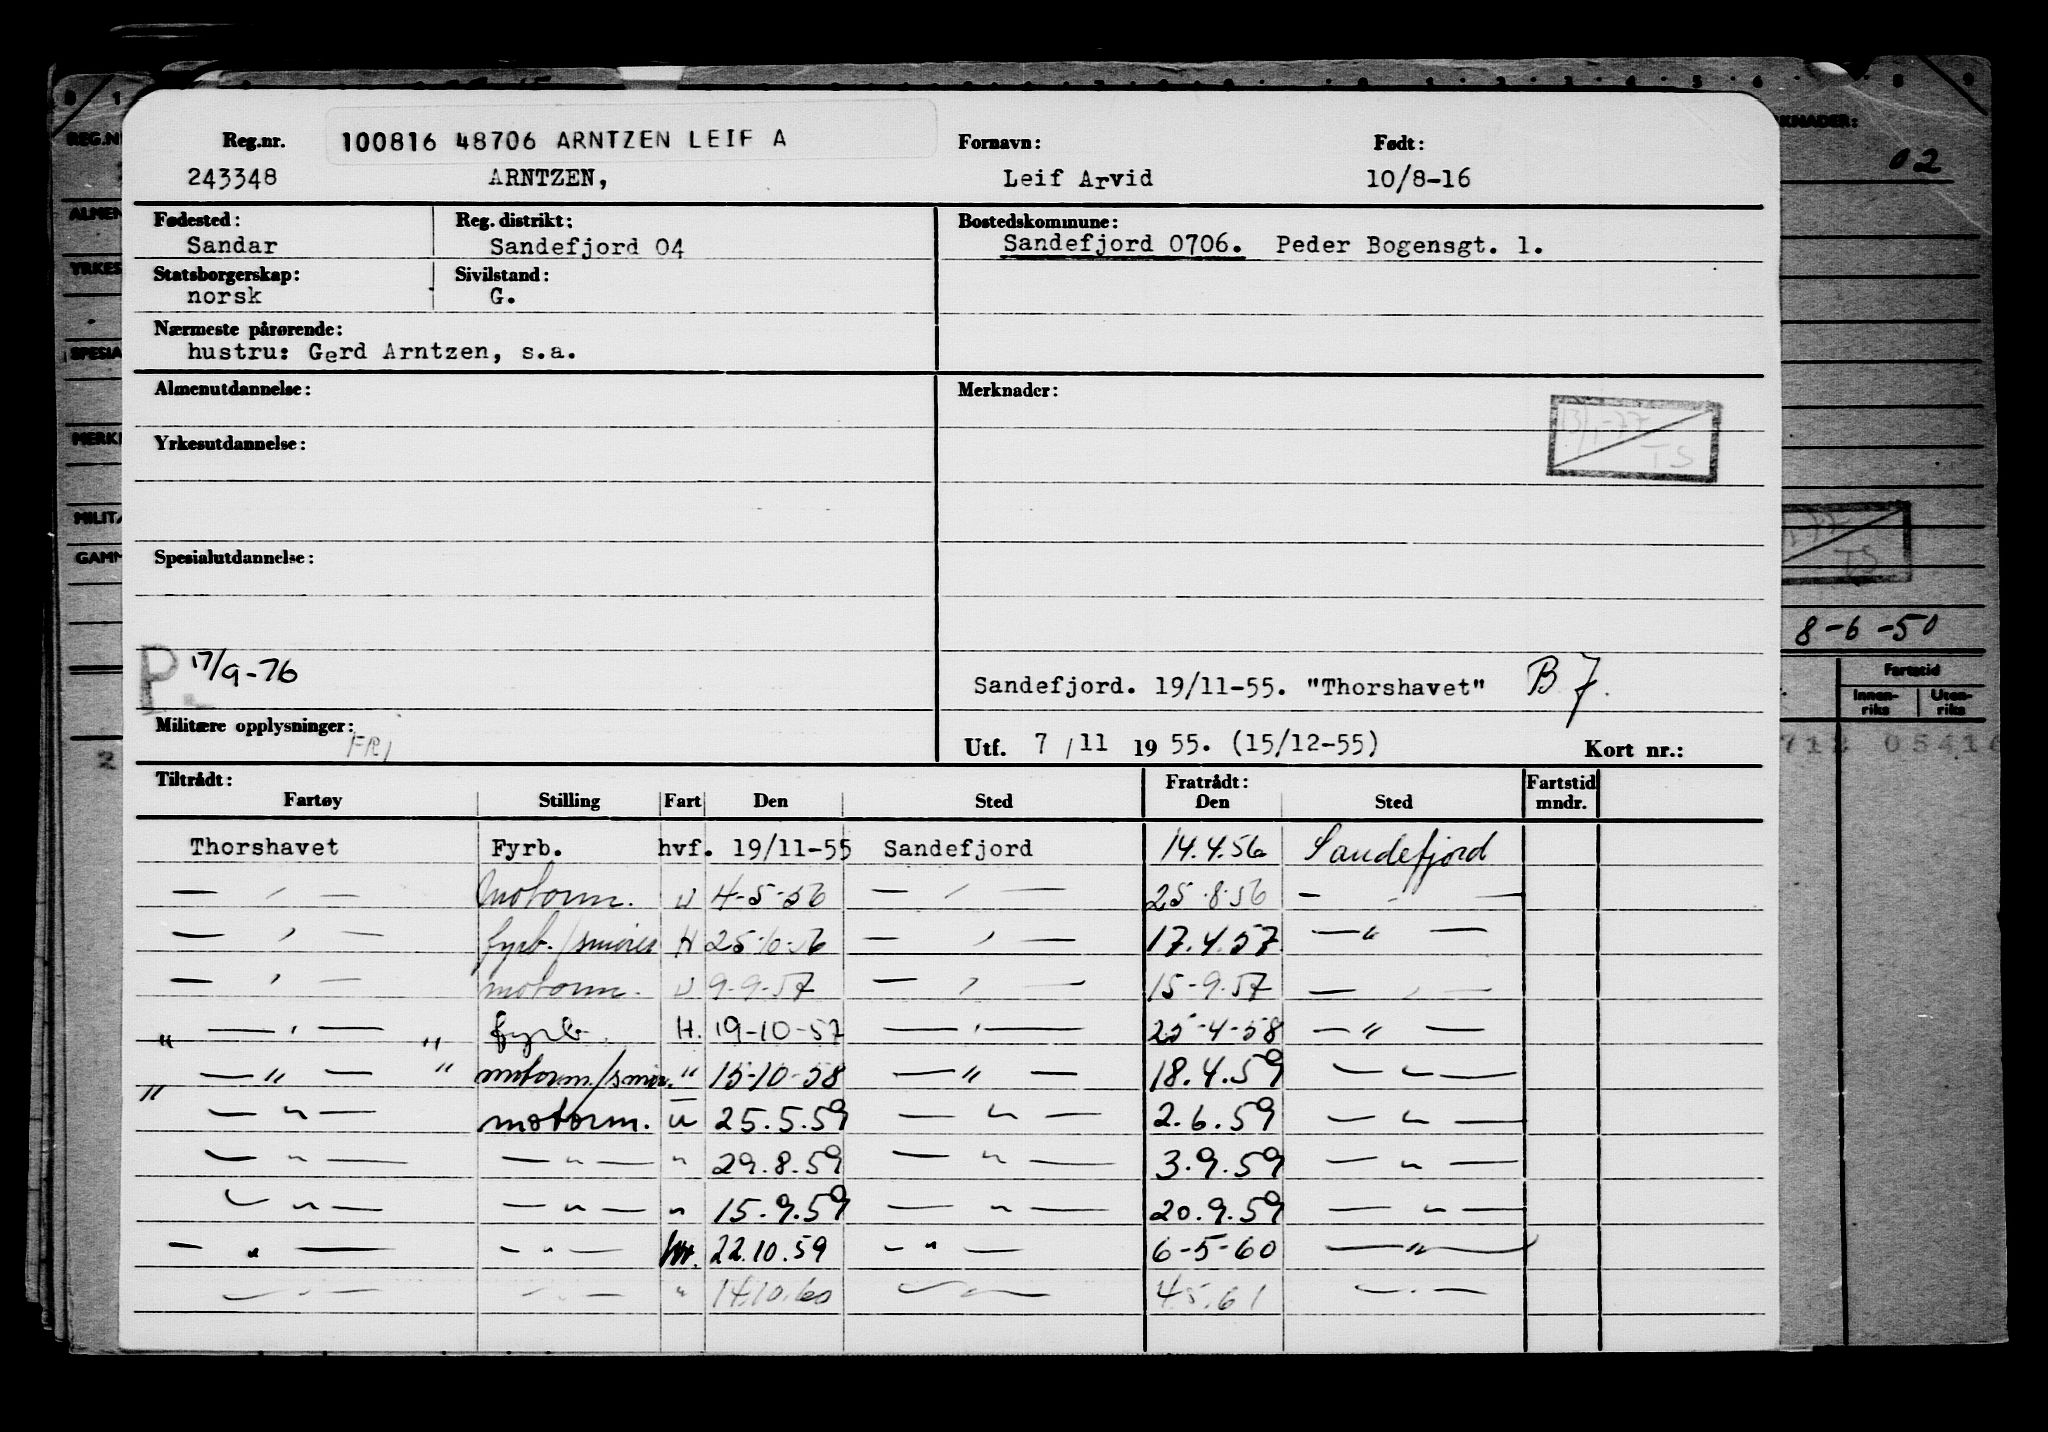 Reg.nr. 100816 48706 ARNTZEN LEIF A Fornavn: Født:
243348 ARNTZEN, Leif Arvid 10/8-16
Fødested: Reg. distrikt: Bostedskommune:
Sandar Sandefjord 04 Sandefjord 0706. Peder Bogensgt. 1.
Statsborgerskap: Sivilstand:
norsk G.
Nærmeste pårørende:
hustru: Gerd Arntzen, s.a.
Almenutdannelse: Merknader:
TS
Yrkesutdannelse:
Spesialutdannelse:
P 17/9-76
Sandefjord. 19/11-55. "Thorshavet" B 7.
Militære opplysninger: FRI
Utf. 7/11 1955. (15/12-55) Kort nr.:
Tiltrådt: Fratrådt: Fartstid
Fartøy Stilling Fart Den Sted Den Sted mndr.
Thorshavet Fyrb. hvf. 19/11-55 Sandefjord 14.4.56 Sandefjord
— " — Motorm. U 4-5-56 — " — 25.8.56 — " —
— " — fyrb./smører H 25-10-56 — " — 17.4.57 — " —
— " — motorm. U 9-9-57 — " — 15-9.57 — " —
" — " — " fyrb. H. 19-10-57 — " — 25-4-58 — " —
" — " — " motorm./smør. " 15-10-58 — " — 18.4.59 — " —
— " — motorm. u 25.5.59 — " — 2.6.59 — " —
— " — — " — " 29.8.59 — " — 3.9.59 — " —
— " — — " — " 15.9.59 — " — 20.9.59 — " —
— " — — " — 22.10.59 — " — 6-5-60 — " —
— " — — " — " 14.10.60 — " — 4.5.61 — " —
02
TS
8-6-50
Fartstid
Innen-riks Uten-riks